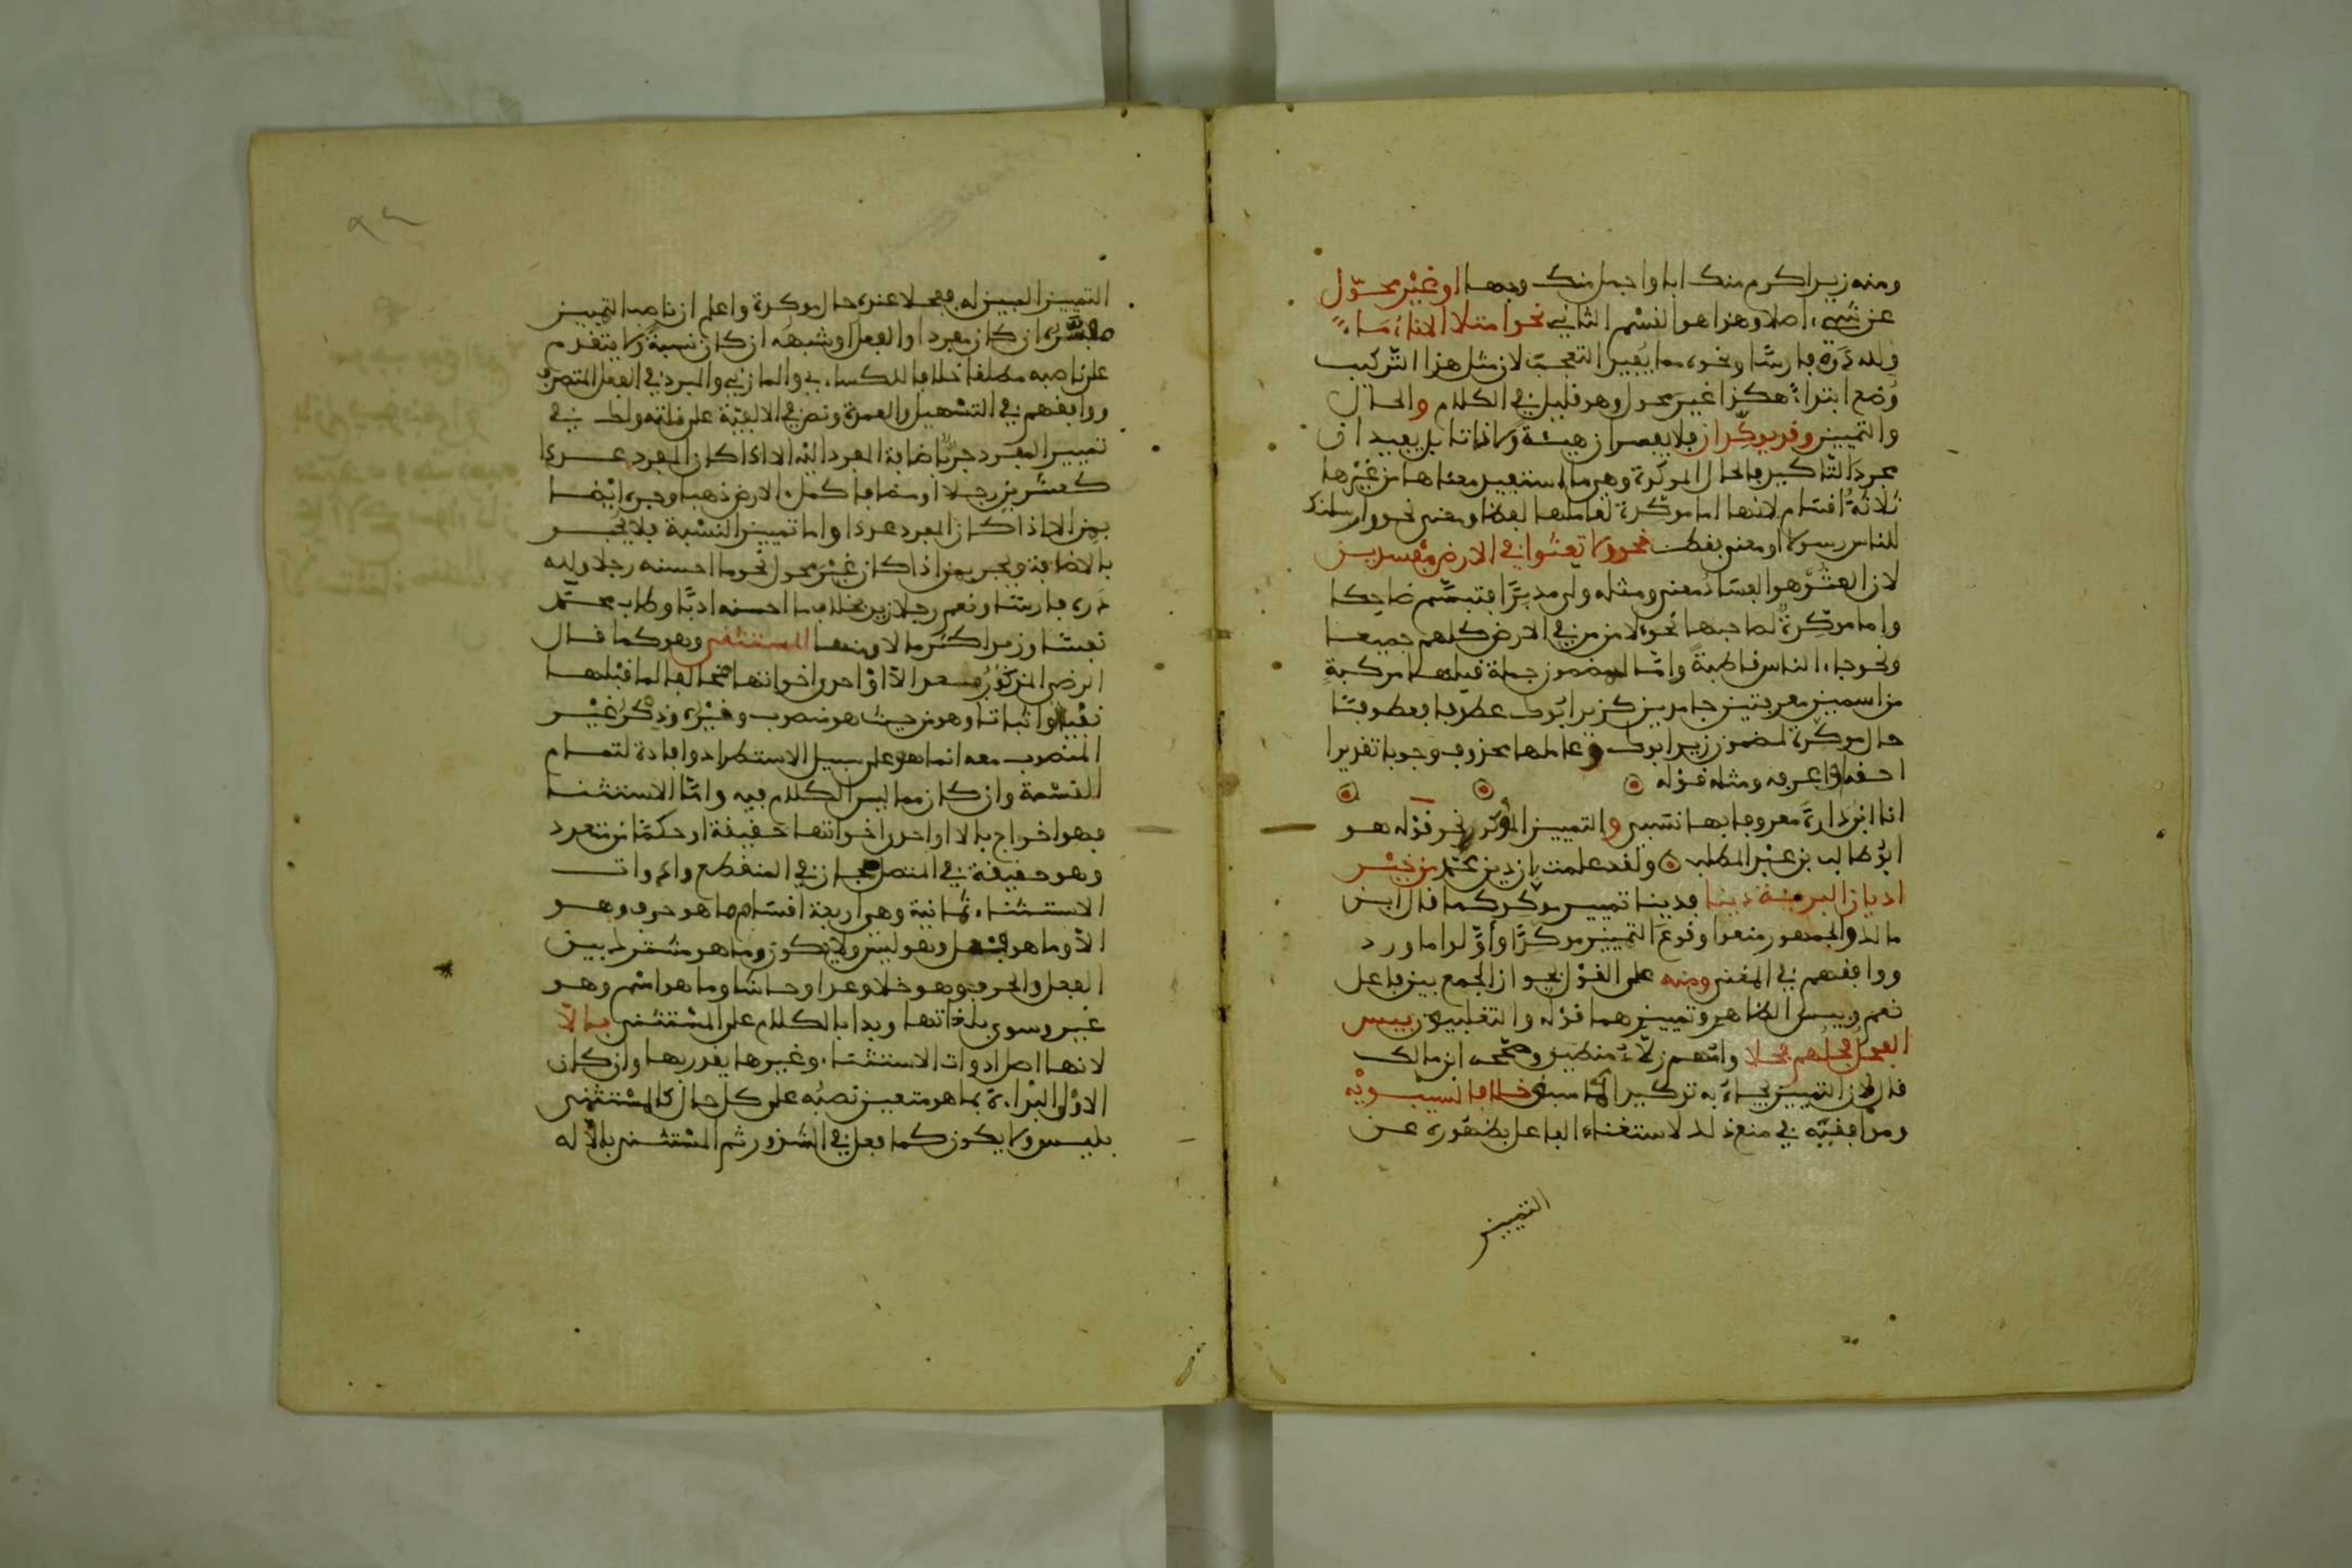 ومنه زيد اكرم منك ابا واجمل منك وجها او غير محوّل
عن شيء اصلا وهذا هو القسم الثاني نحو امتلا الاناء ماءً
ولله درّه فارسًا ونحوه مما يفيد التعجب لان مثل هذا التركيب
وُضع ابتداءً هكذا غير محول وهو قليل في الكلام والحال
والتمييز وقد يوكّدان فلا يفسران هيئة ولا ذاتا بل يفيدان
مجرد التاكيد فالحال الموكدة وهي ما استفيد معناها من غيرها
ثلاثة اقسام لانها اما موكّدة لعاملها لفظا ومعنى نحو وارسلنك
للناس رسولا او معنى فقط نحو ولا تعثوا في الارض مفسدين
لان العثُوَّ هو الفسادُ معنى ومثله ولى مدبرًا فتبسّم ضاحكا
واما موكّدةٌ لصاحبها نحو لامن من في الارض كلهم جميعا
ونحو جاء الناس قاطبةً وامّا لمضمون جملة قبلها مركبةٍ
من اسمين معرفتين جامدين كزيد ابوك عطوفا فعطوفًا
حال موكّدة لمضمون زيد ابوك وعاملها محذوف وجوبا تقديرا
احقه او اعرفه ومثله قوله
انا ابن دارةَ معروفا بها نسبي والتمييز الموكد نحو قوله هو
ابو طالب بن عبد المطلب ولقد علمت بان دين محمّد من خير
اديان البرية دينا فدينا تمييز موكّد كما قال ابن
مالك والجمهور منعوا وقوع التمييز موكدًا وأوّلوا ما ورد
ووافقهم في المغني ومنه على القول بجواز الجمع بين فاعل
نعم وبيس الظاهر وتمييزهما قوله والتغلبيون بيس
الفحل فحلُهم فحلا وامّهم زلّاءُ منطيق وصحّحه ابن مالك
قال لان التمييز يجاءُ به توكيدا كما سبق خلافا لسيبويه
وموافقيه في منعه ذلك لاستغناء الفاعل بظهوره عن
التمييز
التمييز المبين له ففحلا عنده حال موكدة واعلم ان ناصب التمييز
مفسّره ان كان مفردا او الفعل او شبهه ان كان نسبةً ولا يتقدم
على ناصبه مطلقا خلافا للكساءي والمازني والمبرد في الفعل المتصرف
ووافقهم في التسهيل والعمدة ونص في الالفيّة على قلته ولك في
تمييز المفرد جرّه باضافة المفرد اليه الا اذا كان المفرد عددا
كعشرين رجلا او مضافا كملء الارض ذهبا وجره ايضا
بمن الا اذا كان المفرد عددا واما تمييز النسبة فلا يجر
بالاضافة ويجر بمن اذا كان غير محول نحو ما احسنه رجلا ولله
دره فارسًا ونعم رجلا زيد بخلاف ما احسنه ادبًا وطاب محمّد
نفسًا وزيد اكثر مالا ومنها المستثنى وهو كما قال
الرضي المذكورُ بعد الّا أوْ احدى اخواتها مخالفا لما قبلها
نفيا واثباتا وهو من حيث هو منصوب وغيْرُه وذِكْرُ غيْر
المنصوب معه انما هو على سبيل الاستطراد وافادة لتمام
القسمة وان كان مما ليس الكلام فيه وامّا الاستثنا
فهو اخراج بالا او احدى اخواتها حقيقة او حكمًا من متعدد
وهو حقيقة في المتصل مجاز في المنقطع وادوات
الاستثناء ثمانية وهي اربعة اقسام ما هو حرف وهو
الّا وما هو فعل وهو ليس ولا يكون وما هو مشترك بين
الفعل والحرف وهو خلا وعدا وحاشا وما هو اسم وهو
غير وسوى بلغاتها وبدا بالكلام على المستثنى بالّا
لانها اصل ادوات الاستثناء وغيرها يقدر بها وان كان
الاوْلى البداءة بما هو متعين نصبُه على كل حال كالمستثنى
بليس ولا يكون كما فعل في الشذور ثم المستثنى بالّا له